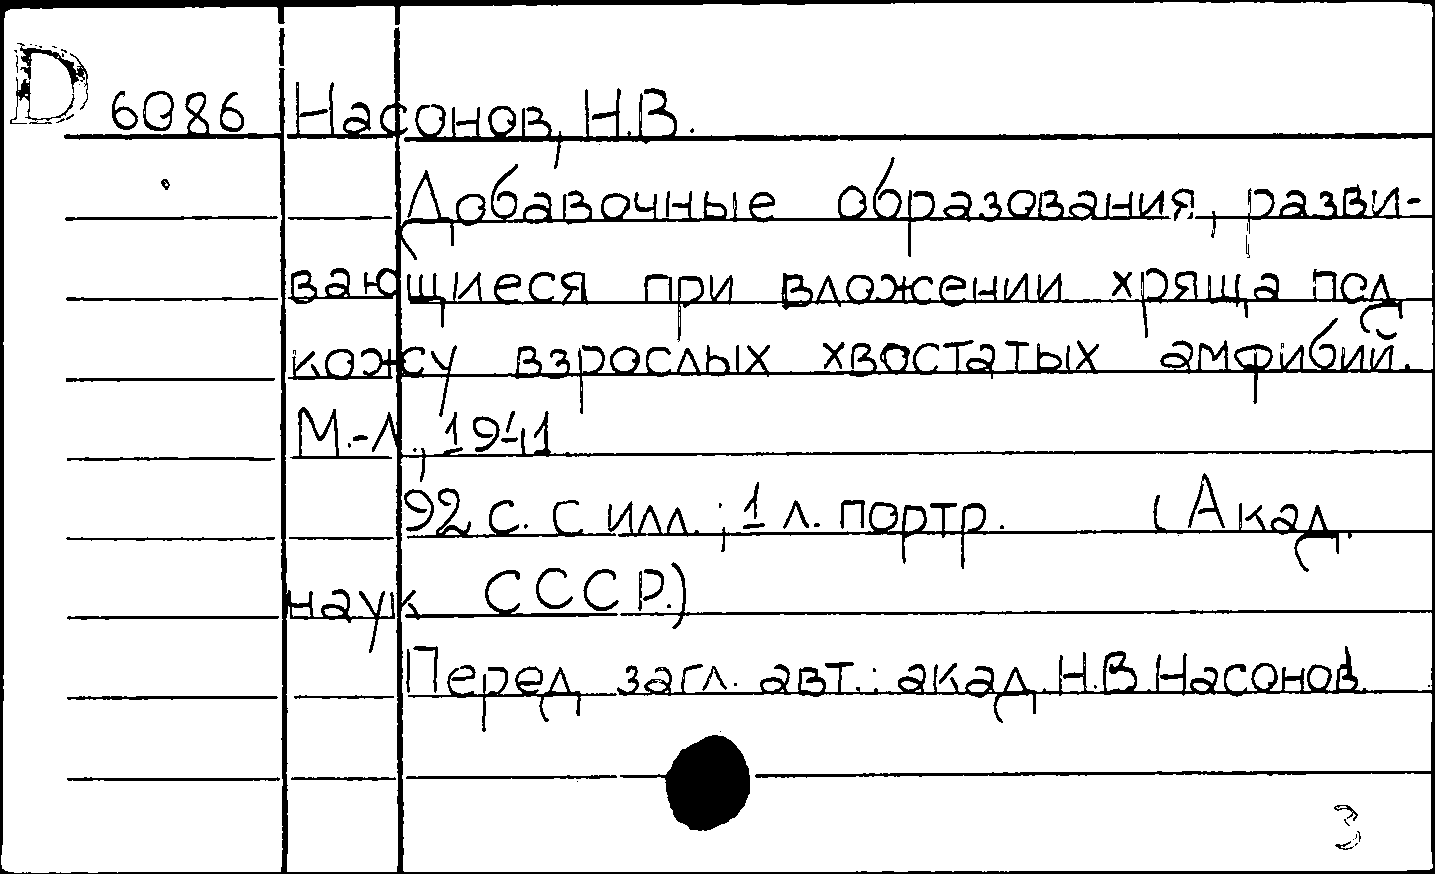 D 6086 Насонов, Н.В.
Добавочные образования, разви-
вающиеся при вложении хряща под
кожу взрослых хвостатых амфибий.
М.-Л., 1941
92 с. с илл.; 1 л. портр. (Акад.
наук СССР.)
Перед загл. авт.: акад. Н.В. Насонов.
3